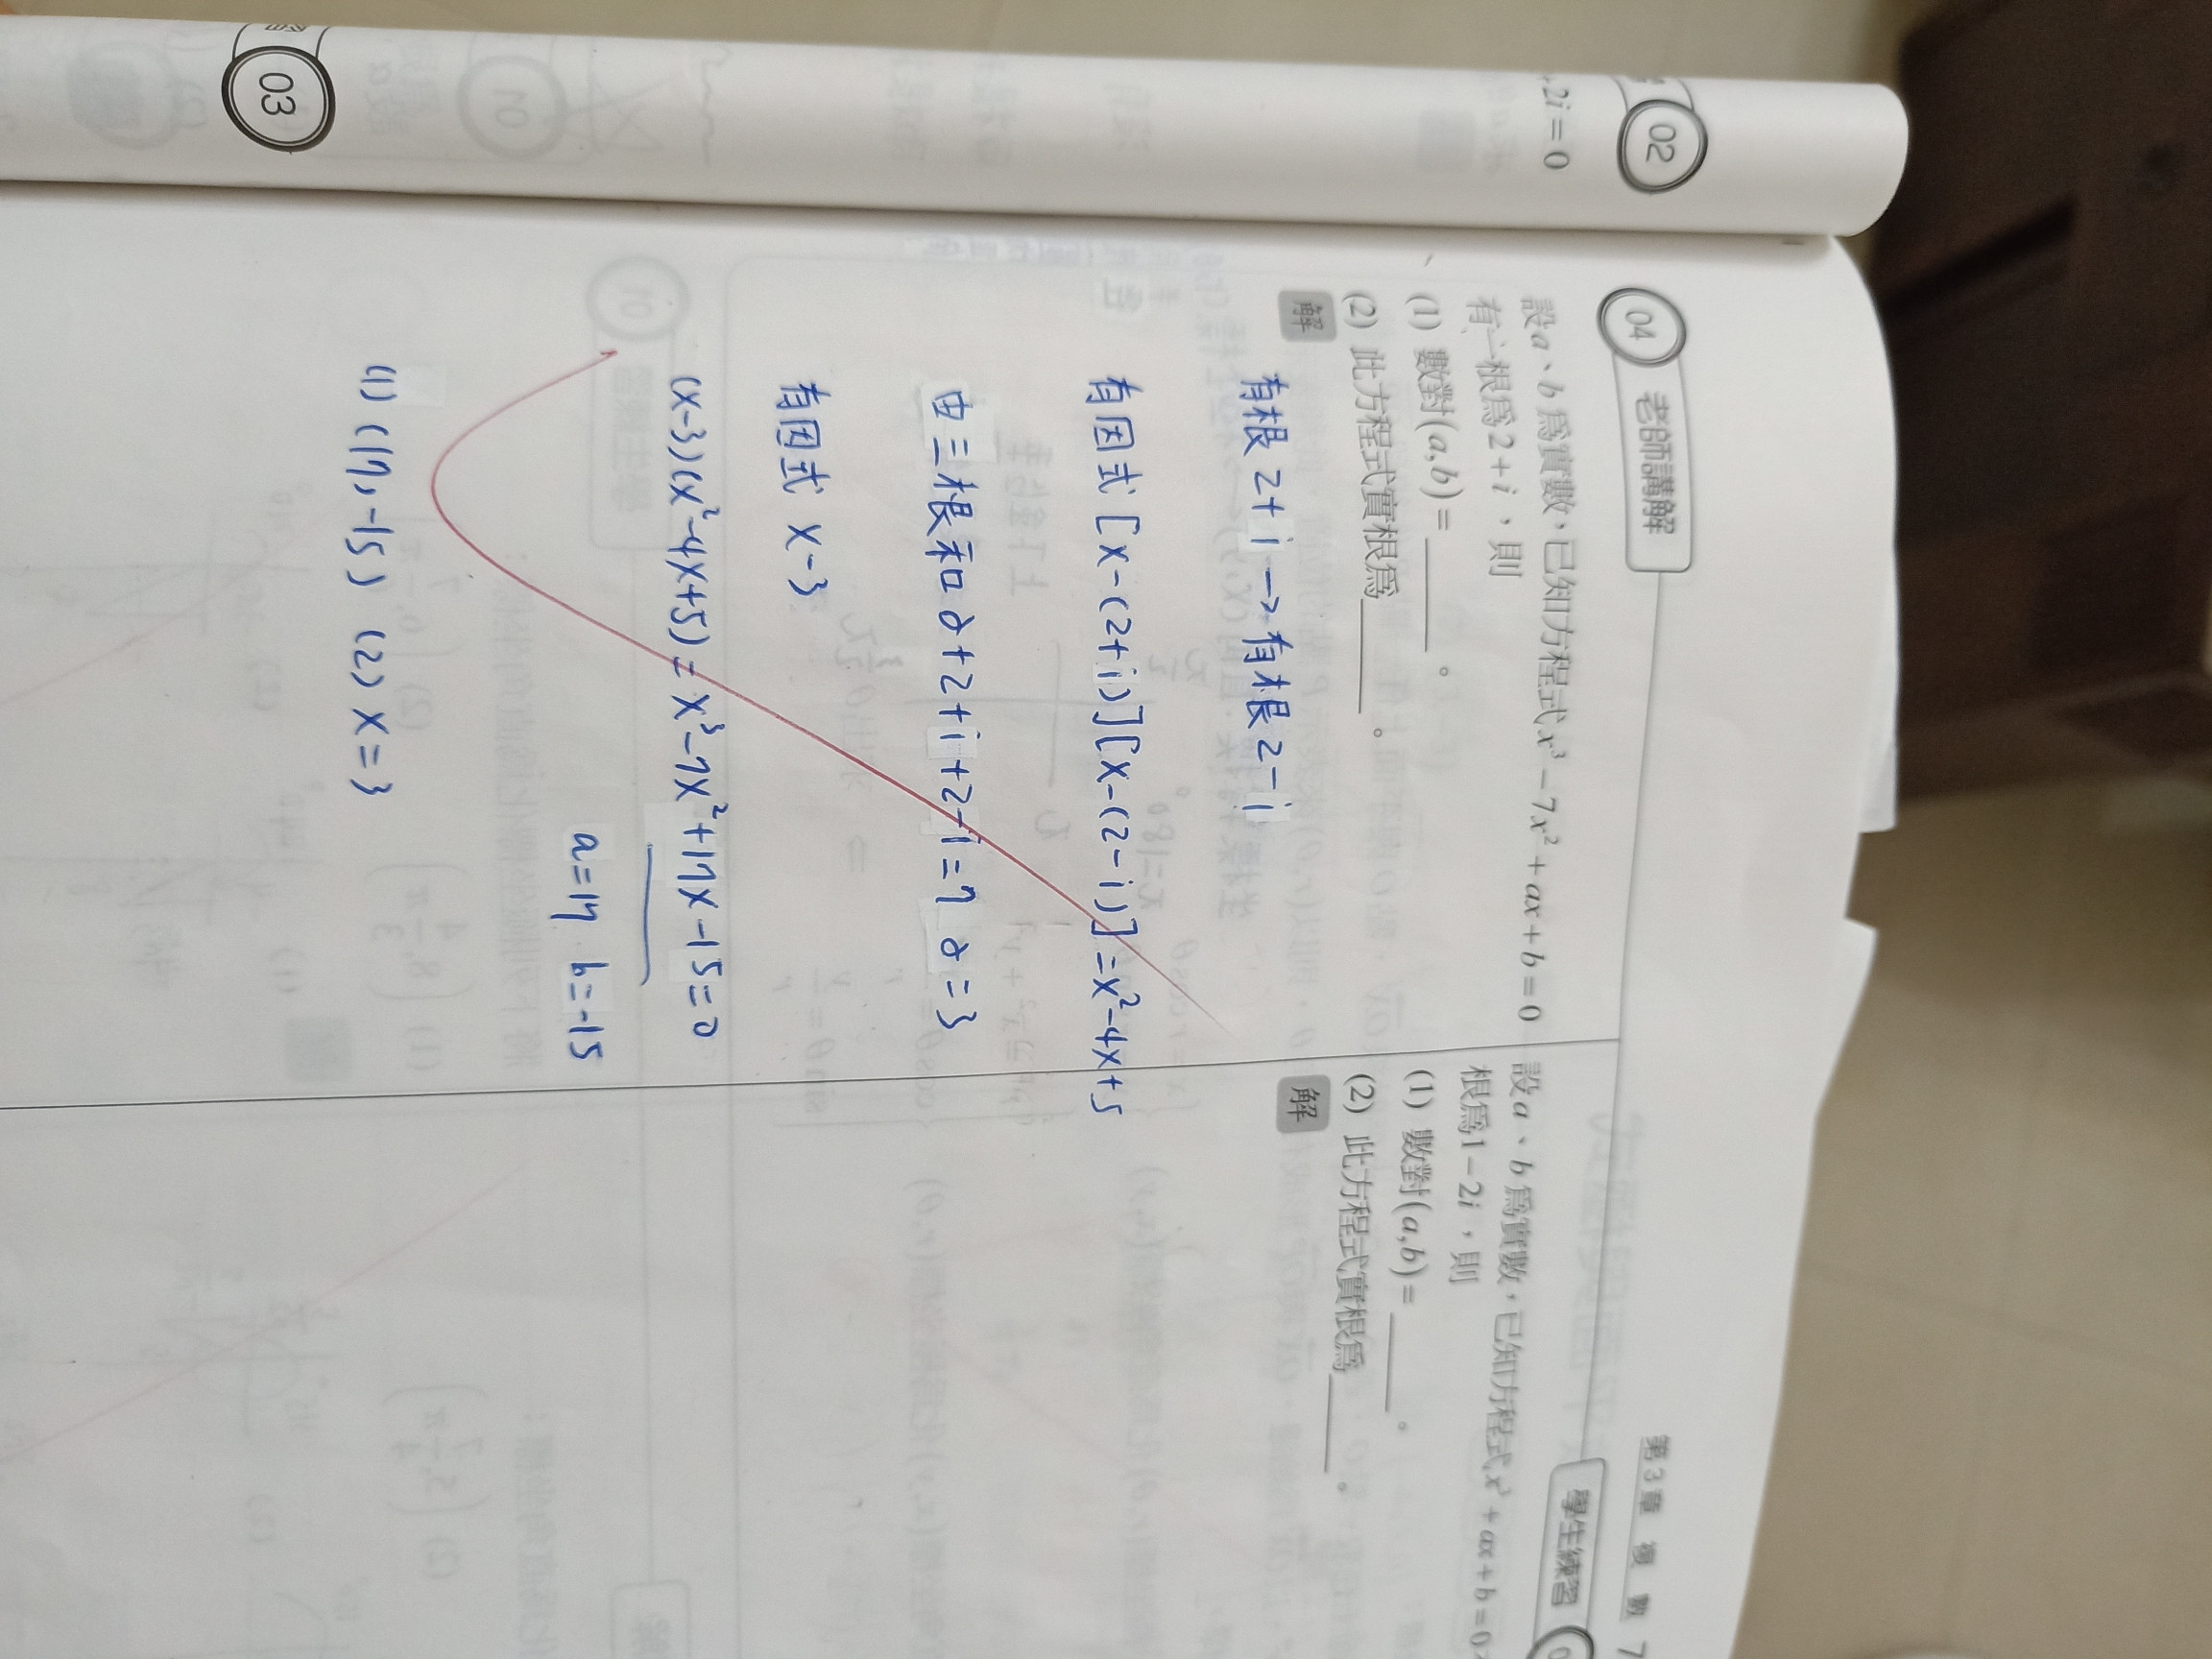 02
+2i=0
03
第3章 複 數 7
04 老師講解
設a、b爲實數，已知方程式x³-7x²+ax+b=0
有一根爲2+i，則
(1) 數對(a,b)=______。
(2) 此方程式實根爲______。
解
有根 2+i → 有根 2-i
有因式 [x-(2+i)][x-(2-i)]=x²-4x+5
由三根和 α+2+i+2-i=7 α=3
有因式 x-3
(x-3)(x²-4x+5)=x³-7x²+17x-15=0
a=17 b=-15
(1) (17,-15) (2) x=3
學生練習
設a、b爲實數，已知方程式x³+ax+b=0
根爲1-2i，則
(1) 數對(a,b)=______。
(2) 此方程式實根爲______。
解